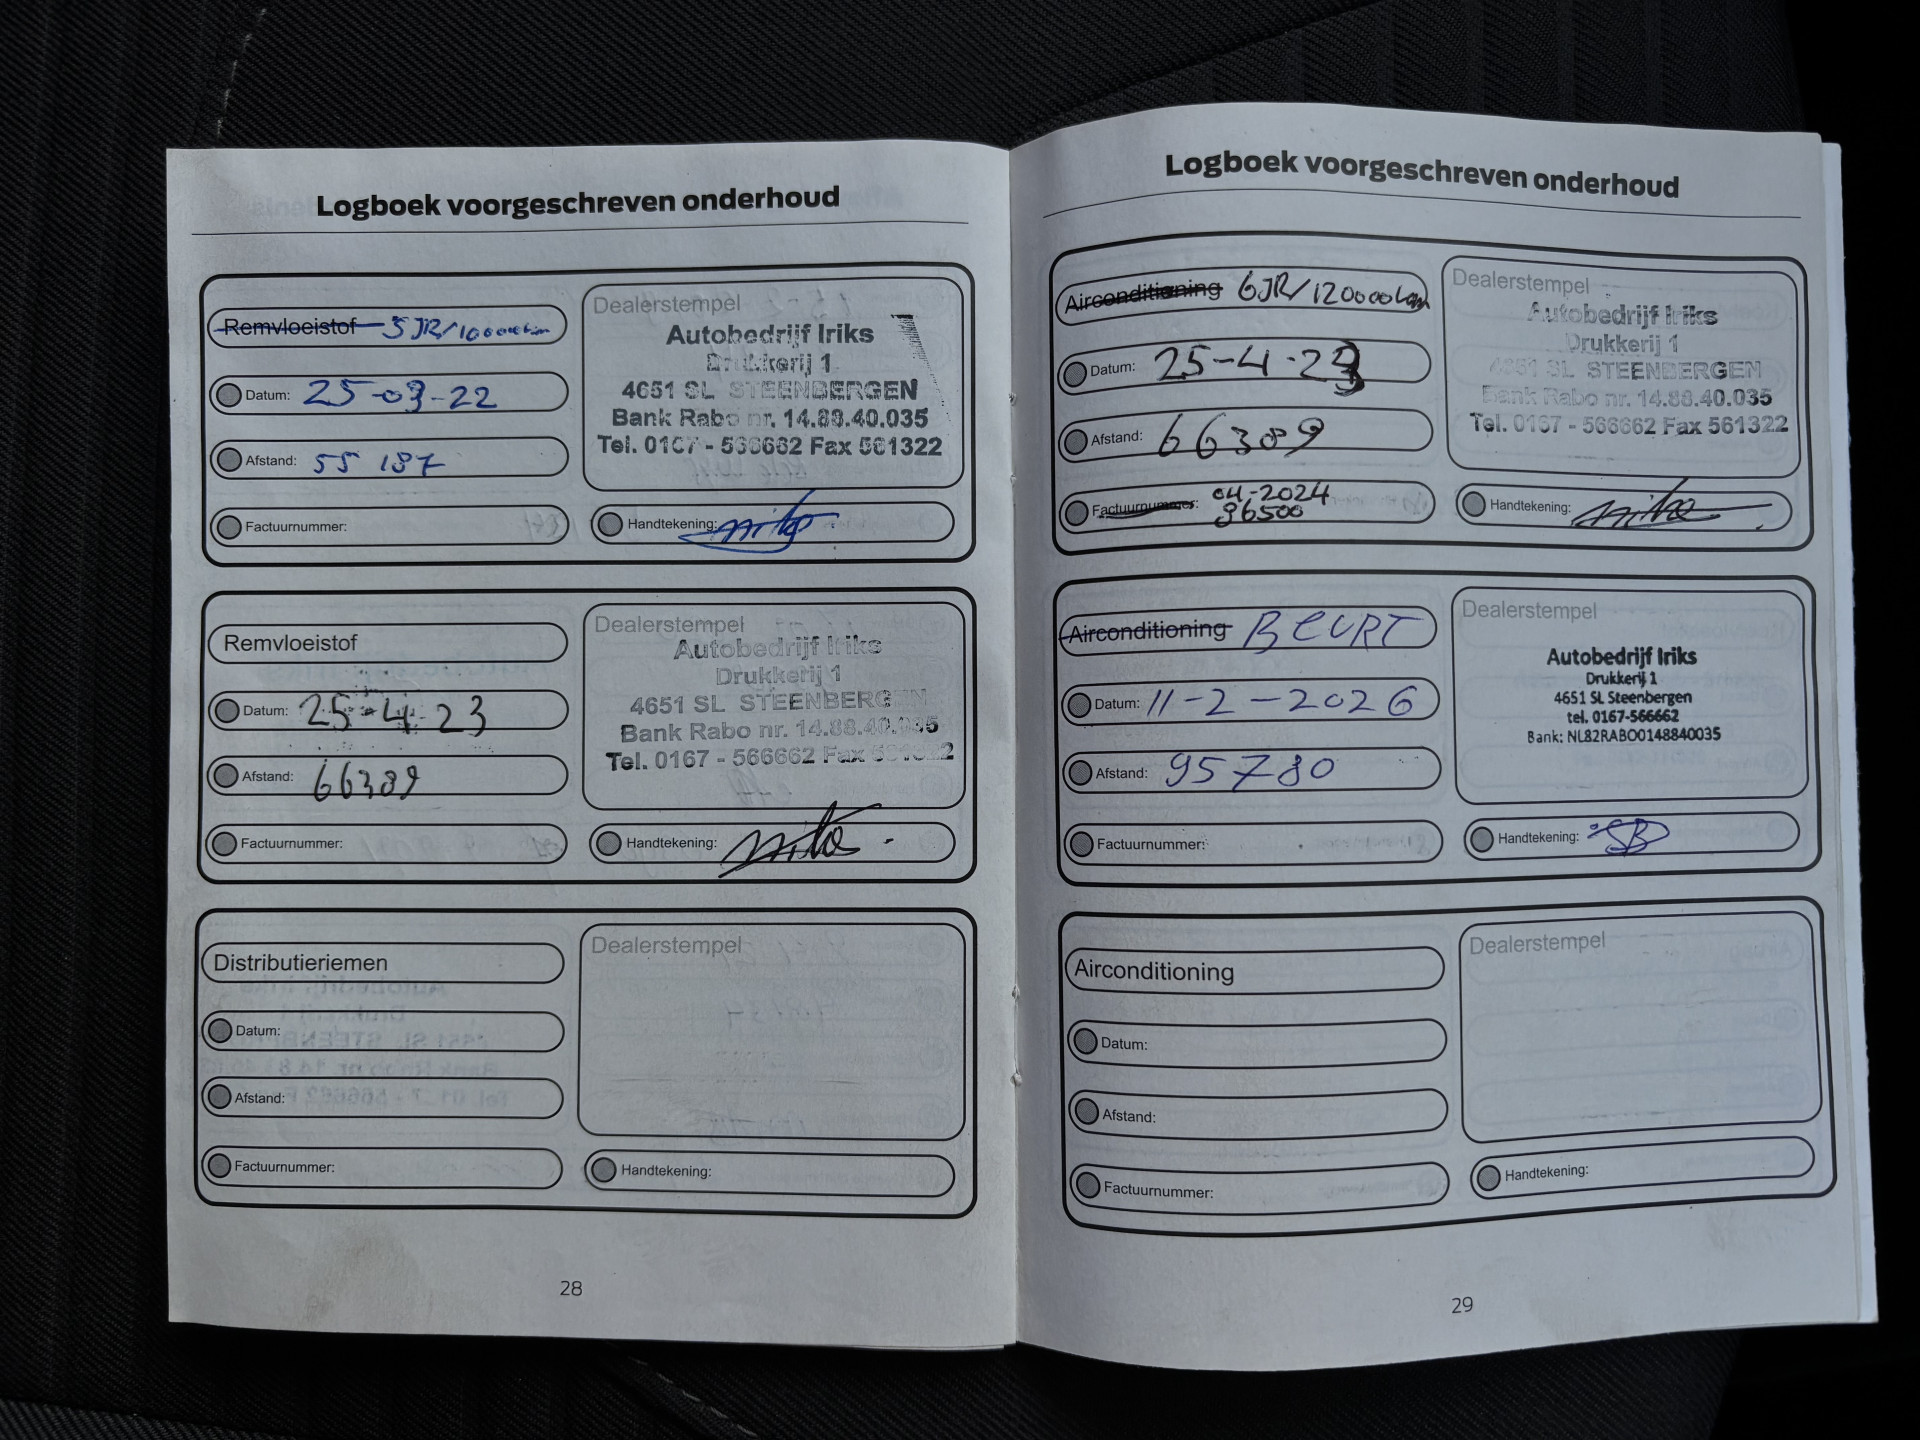 Logboek voorgeschreven onderhoud
Remvloeistof 5 JR/100000km
Datum: 25-03-22
Afstand: 55 187
Factuurnummer:
Dealerstempel
Autobedrijf Iriks
Drukkerij 1
4651 SL STEENBERGEN
Bank Rabo nr. 14.88.40.035
Tel. 0167 - 566662 Fax 561322
Handtekening:
Remvloeistof
Datum: 25-4-23
Afstand: 66389
Factuurnummer:
Dealerstempel
Autobedrijf Iriks
Drukkerij 1
4651 SL STEENBERGEN
Bank Rabo nr. 14.88.40.035
Tel. 0167 - 566662 Fax 561322
Handtekening:
Distributieriemen
Datum:
Afstand:
Factuurnummer:
Dealerstempel
Handtekening:
28
Logboek voorgeschreven onderhoud
Airconditioning 6JR/120000km
Datum: 25-4-23
Afstand: 66389
Factuurnummer: 04-2024
86500
Dealerstempel
Autobedrijf Iriks
Drukkerij 1
4651 SL STEENBERGEN
Bank Rabo nr. 14.88.40.035
Tel. 0167 - 566662 Fax 561322
Handtekening:
Airconditioning BEURT
Datum: 11-2-2026
Afstand: 95780
Factuurnummer:
Dealerstempel
Autobedrijf Iriks
Drukkerij 1
4651 SL Steenbergen
tel. 0167-566662
Bank: NL82RABO0148840035
Handtekening: SB
Airconditioning
Datum:
Afstand:
Factuurnummer:
Dealerstempel
Handtekening:
29